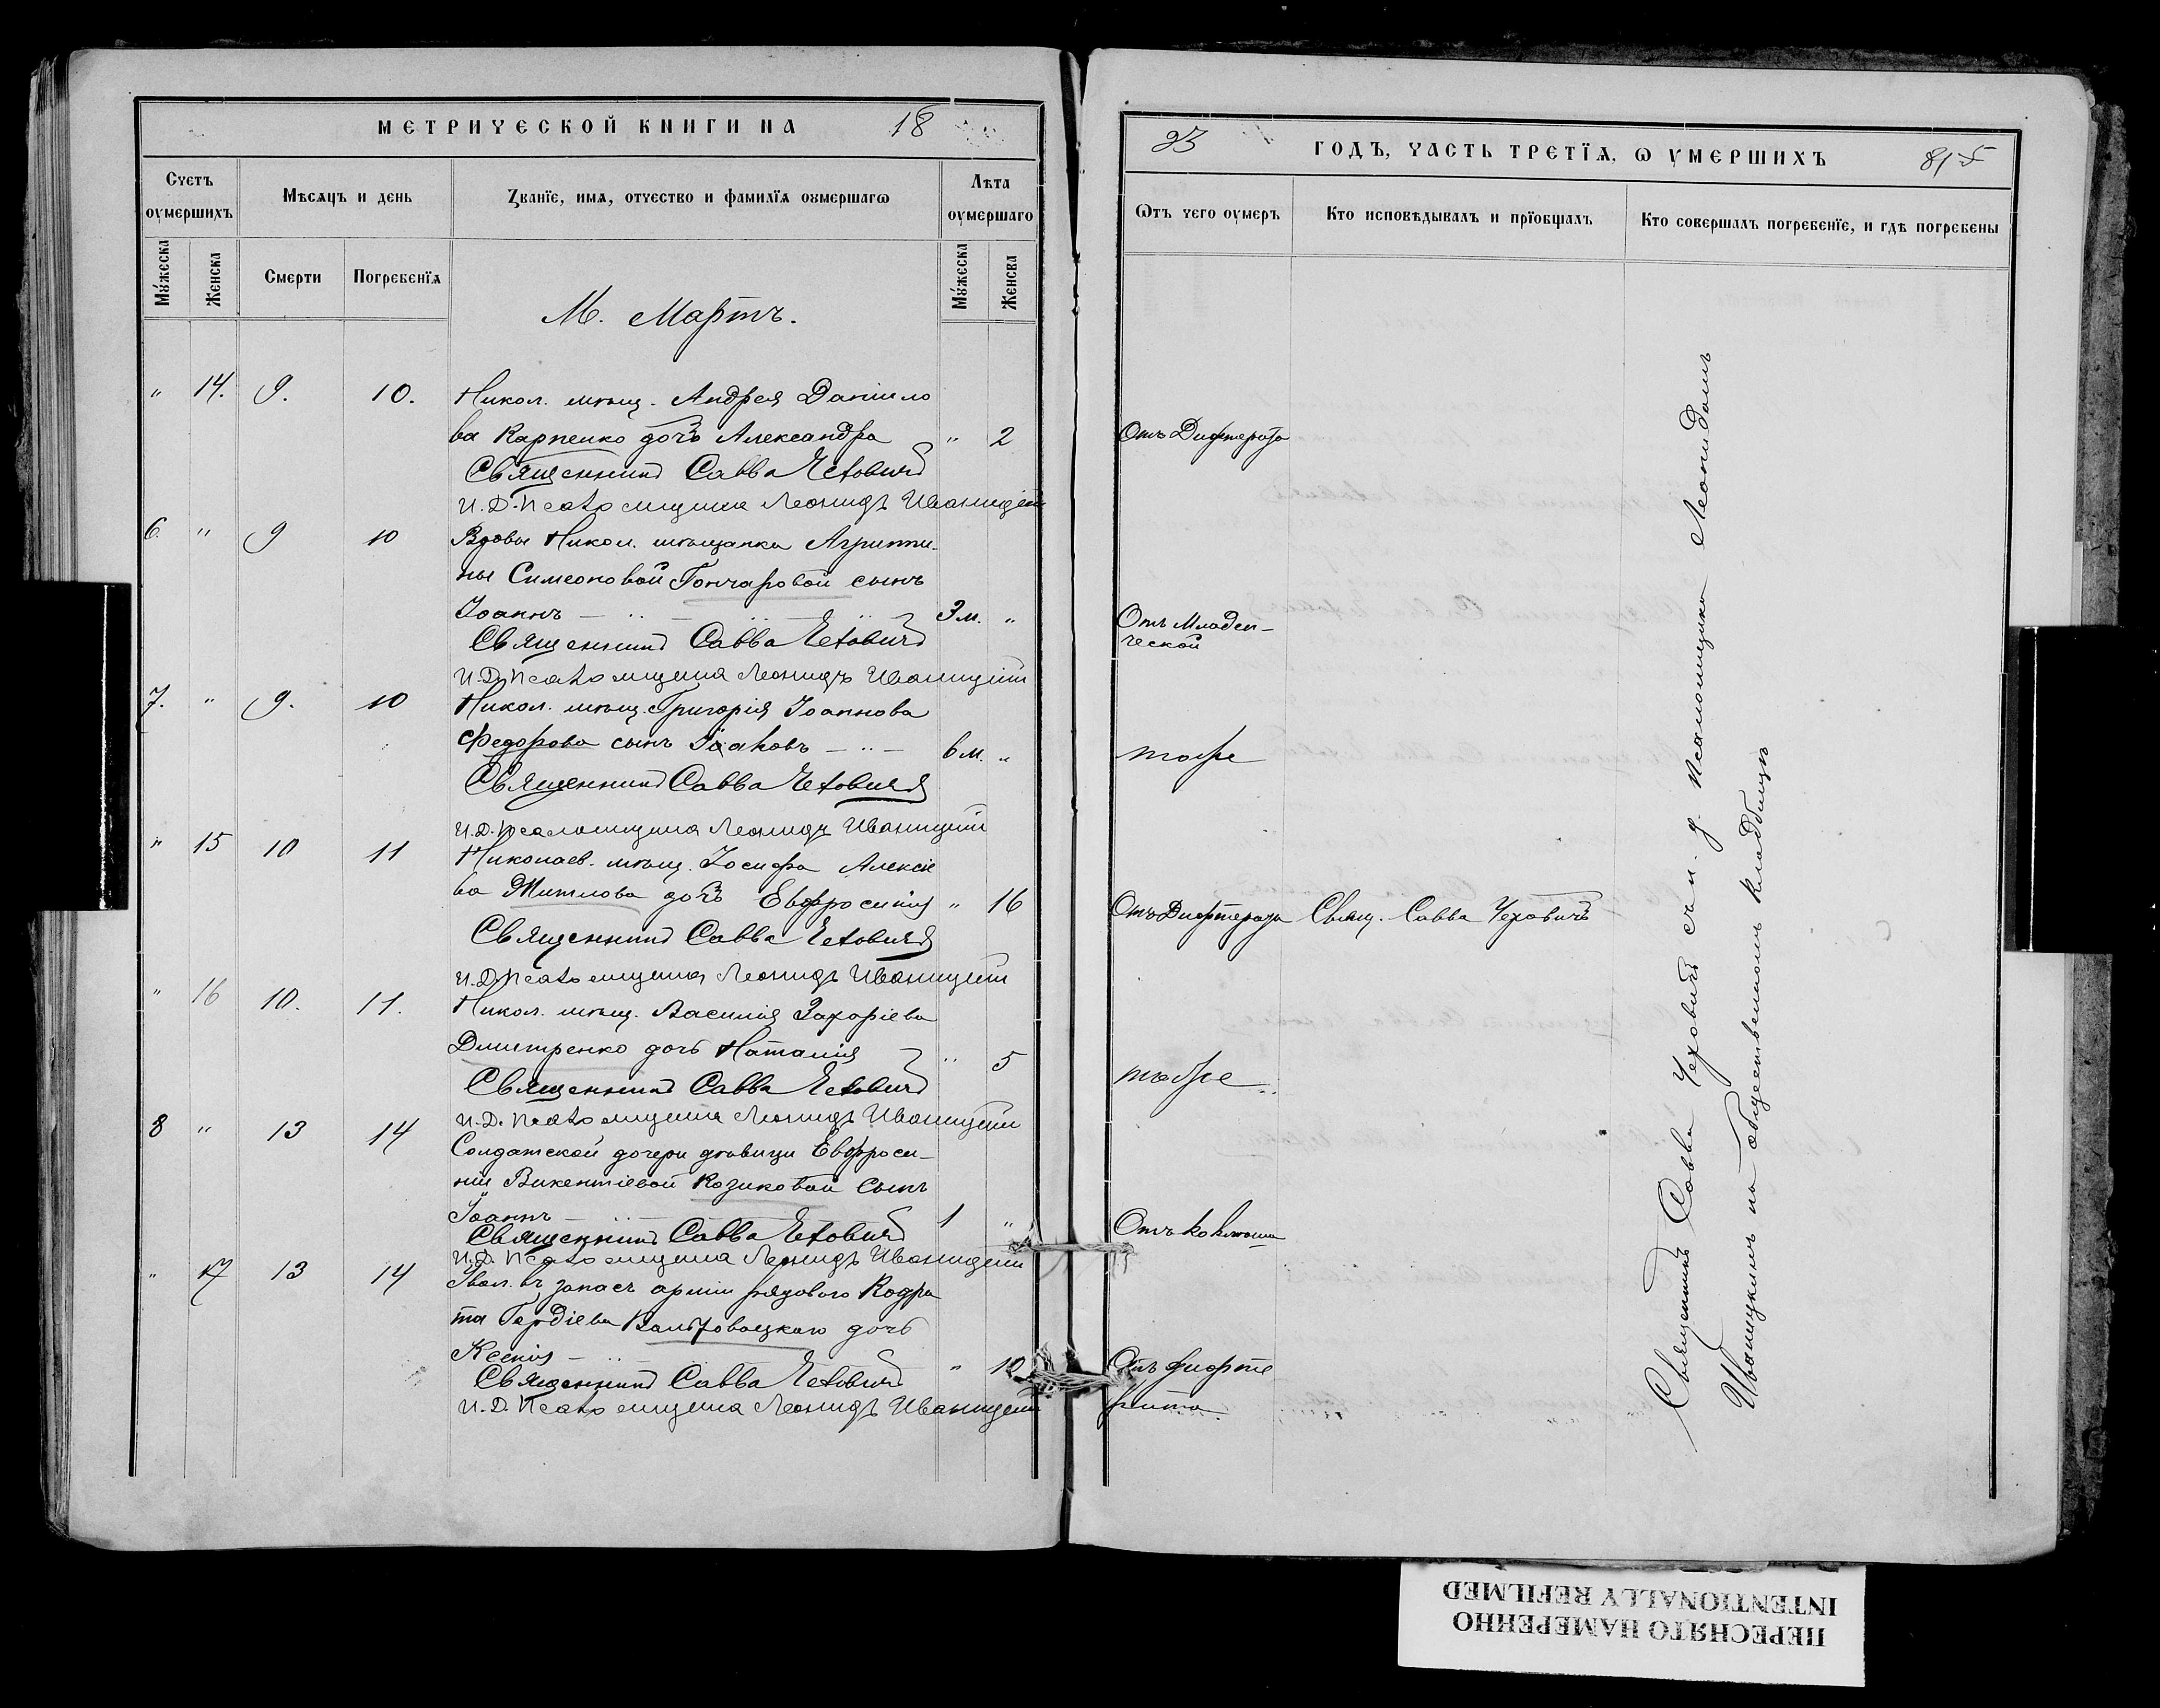 МЕТРИЧЕСКОЙ КНИГИ НА 18
Счетъ оумершихъ
Мѣсяцъ и день
Званїе, имя, отчество и фамилїя оумершагѡ
Лѣта оумершаго
Мужеска
Женска
Смерти
Погребенїя
Мужеска
Женска
М. Мартъ.
" 14. 9. 10. Никол. мѣщ. Андрея Данило
ва Карпенко дочь Александра " 2
Священникъ Савва Чеховичъ
И. Д. Псаломщика Леонидъ Иваницкій
6 " 9 10 Вдовы Никол. мѣщанки Агрипи-
ны Симеоновой Гончаровой сынъ
Іоаннъ 3 м. "
Священникъ Савва Чеховичъ
И. Д. Псаломщика Леонидъ Иваницкій
7. " 9. 10 Никол. мѣщ. Григорія Іоаннова
Федорова сынъ Іаковъ 6 м. "
Священникъ Савва Чеховичъ
И. Д. Псаломщика Леонидъ Иваницкій
" 15 10 11 Николаев. мѣщ. Іосифа Алексіе
ва Титлова дочь Евфросинія " 16
Священникъ Савва Чеховичъ
И. Д. Псаломщика Леонидъ Иваницкій
" 16 10. 11. Никол. мѣщ. Василія Захаріева
Дмитренко дочь Наталія " 5
Священникъ Савва Чеховичъ
И. Д. Псаломщика Леонидъ Иваницкій
8 " 13 14 Солдатской дочери дѣвицы Евфроси-
ніи Викентіевой Козиковой сынъ
Іоаннъ 1 "
Священникъ Савва Чеховичъ
И. Д. Псаломщика Леонидъ Иваницкій
" 17 13 14 Увол. въ запасъ арміи рядового Кодра
та Гордіева дочь
Ксенія " 10
Священникъ Савва Чеховичъ
И. Д. Псаломщика Леонидъ Иваницкій
93 ГОДЪ, ЧАСТЬ ТРЕТЇЯ, Ѡ УМЕРШИХЪ 815
Ѿтъ чего оумеръ
Кто исповѣдывалъ и прїобщалъ
Кто совершалъ погребенїе, и гдѣ погребены
Отъ Дифтерита
Отъ Младен-
ческой
тоже
Отъ Дифтерита Свящ. Савва Чеховичъ
тоже
Отъ коклюша
Отъ дифте
рита
Священникъ Савва Чеховичъ съ и. д. псаломщика Леонидомъ
Иваницкимъ на общественномъ кладбищѣ
ПЕРЕСНЯТО НАМЕРЕННО
INTENTIONALLY REFILMED